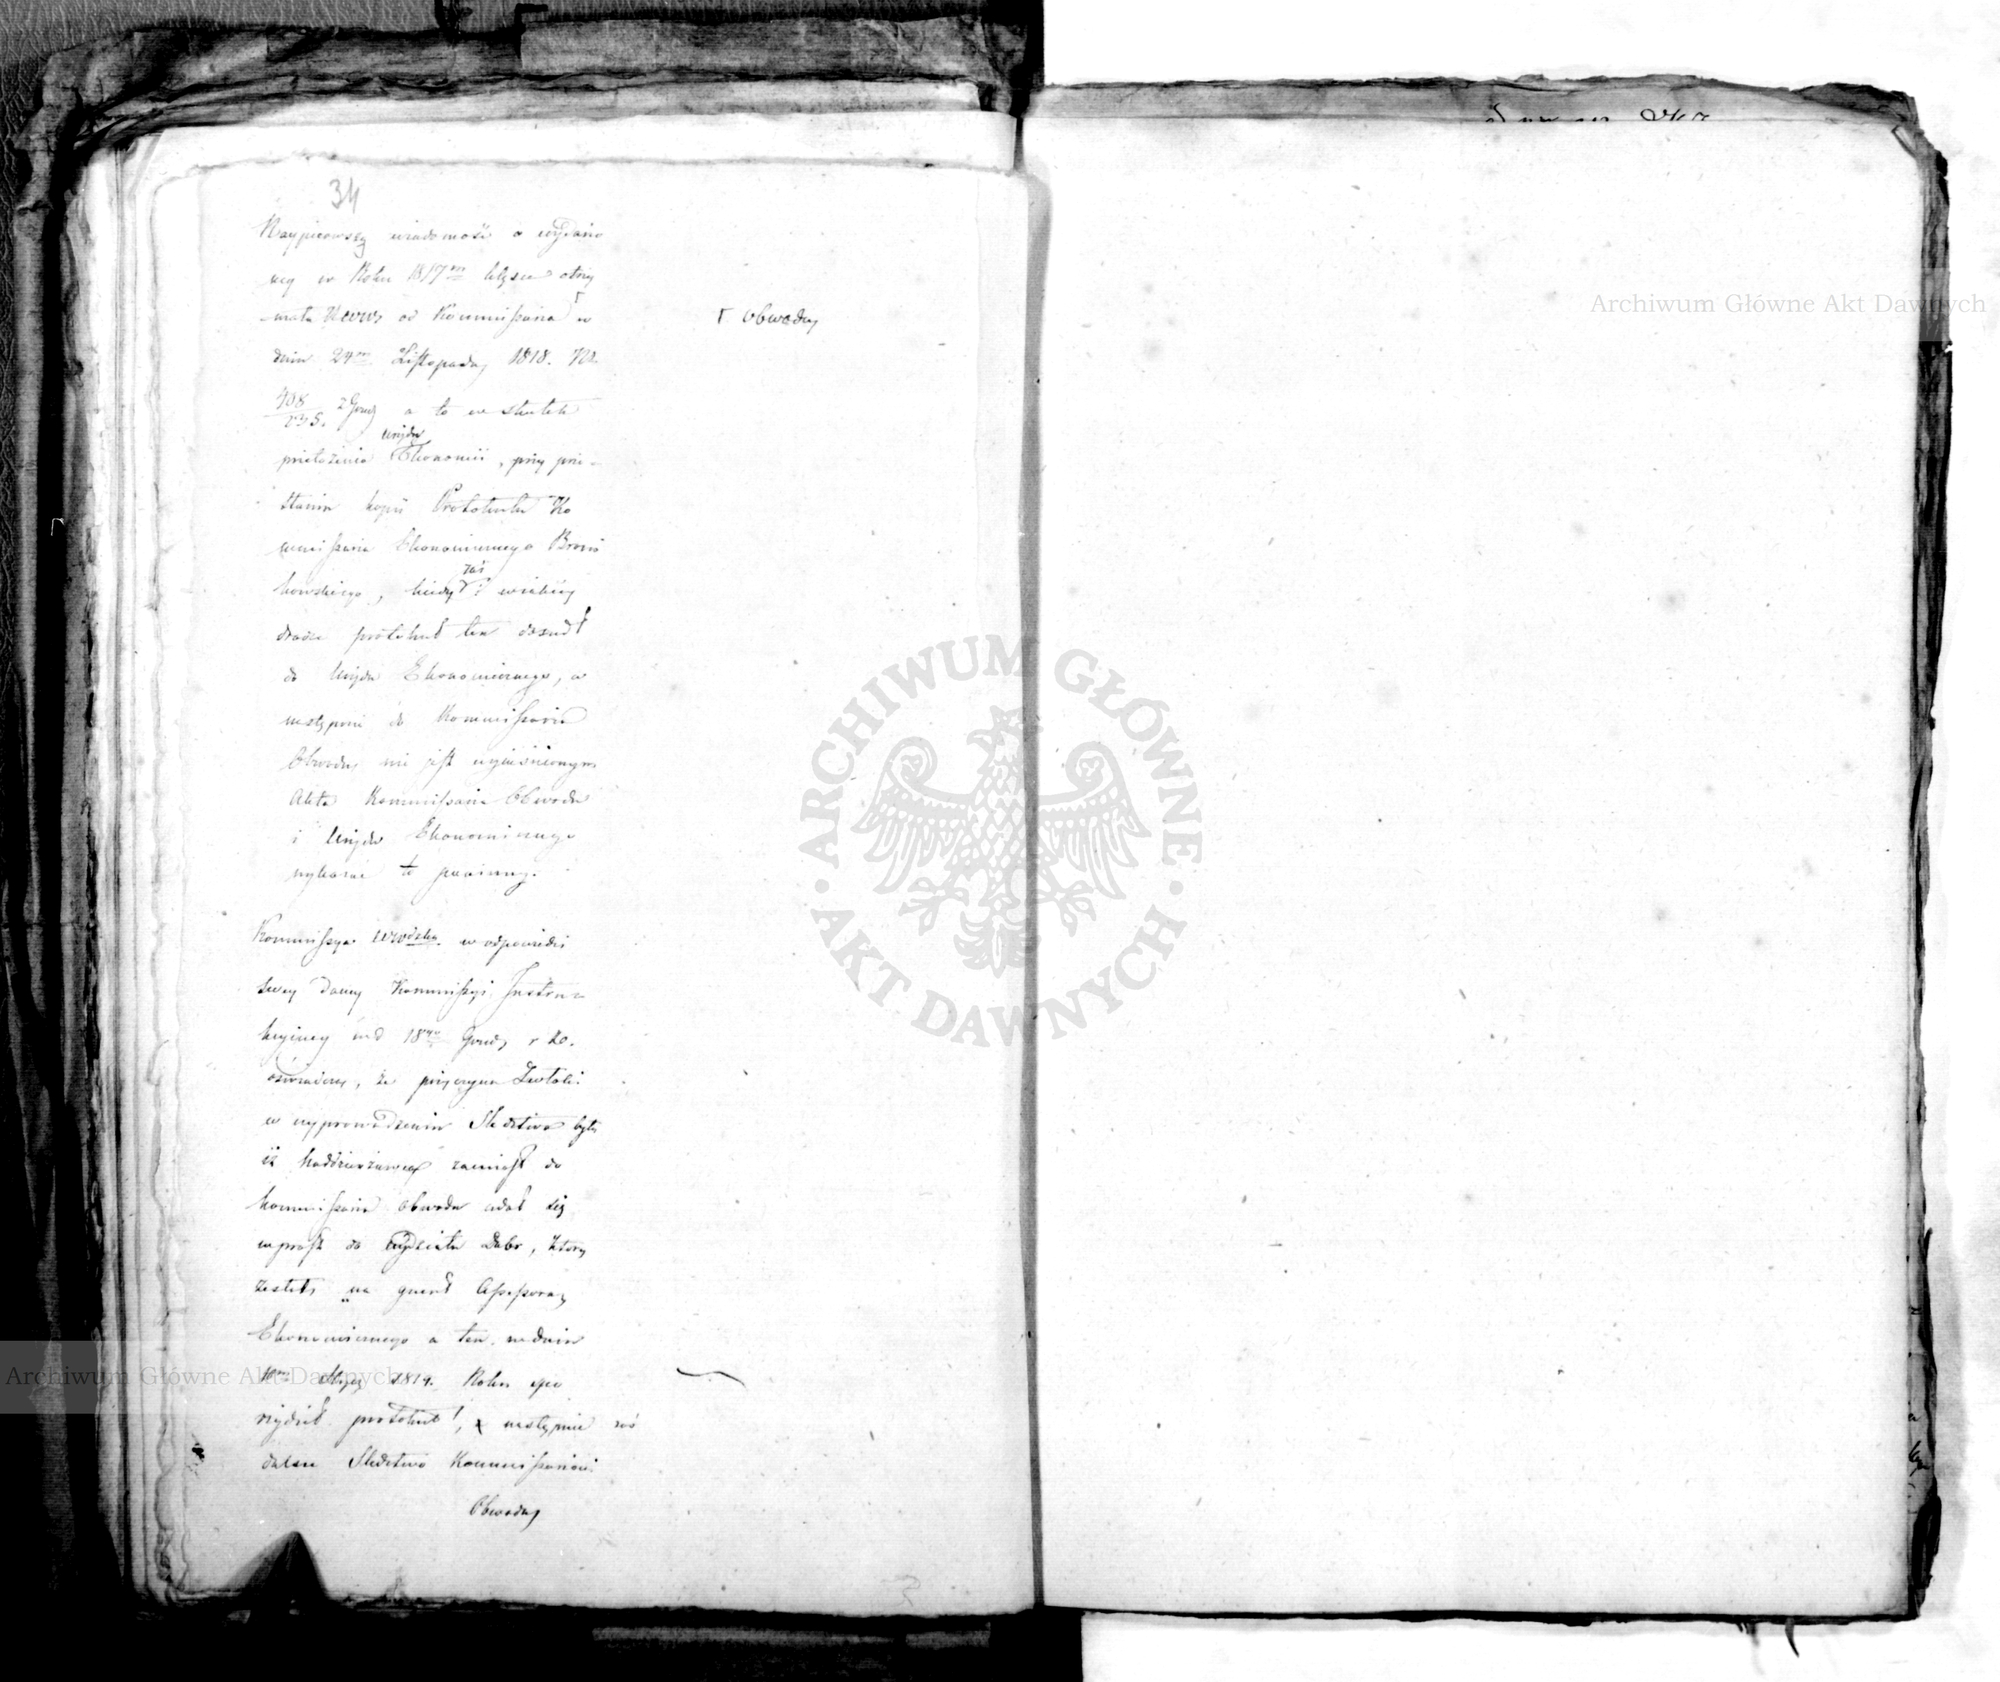 34
Naypierwszą wiadomość o wydano
ney w Roku 1817m klęsce otrzy
mała KWW od Kommissarza ⌈ w
dniu 24m Listopada 1818. No
a to w skutek
przełożenia Urzędu Ekonomii, przy prze-
słaniu kopii Protokułu Ko
mmissarza Ekonomicznego Broni
kowskiego, kiedy zaś i
drodze protokuł ten doszedł
do Urzędu Ekonomicznego, a
następnie do Kommissarza
Obwodu nie jest wyjaśnionym
Akta Kommissarza Obwodu
i Urzędu Ekonomicznego
wykazać to powinny.
⌈ Obwodu
Kommissya Wwdzka w odpowiedzi
swey daney Kommissyi Instru-
kcyiney pod 18 Grud. r
oświadcza, że przyczyną zwłoki
w wyprowadzeniu Śledztwa było
iż Naddzierżawca zamiast do
Kommissarza Obwodu udał się
wprost do Wydziału Dóbr, który
zesłał na grunt Assessora
Ekonomicznego a ten w dniu
1819. Roku spo
rządził protokuł, następnie zaś
dalsze Śledztwo Kommissarzowi
Obwodu
Archiwum Główne Akt Dawnych
Archiwum Główne Akt Dawnych
ARCHIWUM GŁÓWNE
AKT DAWNYCH